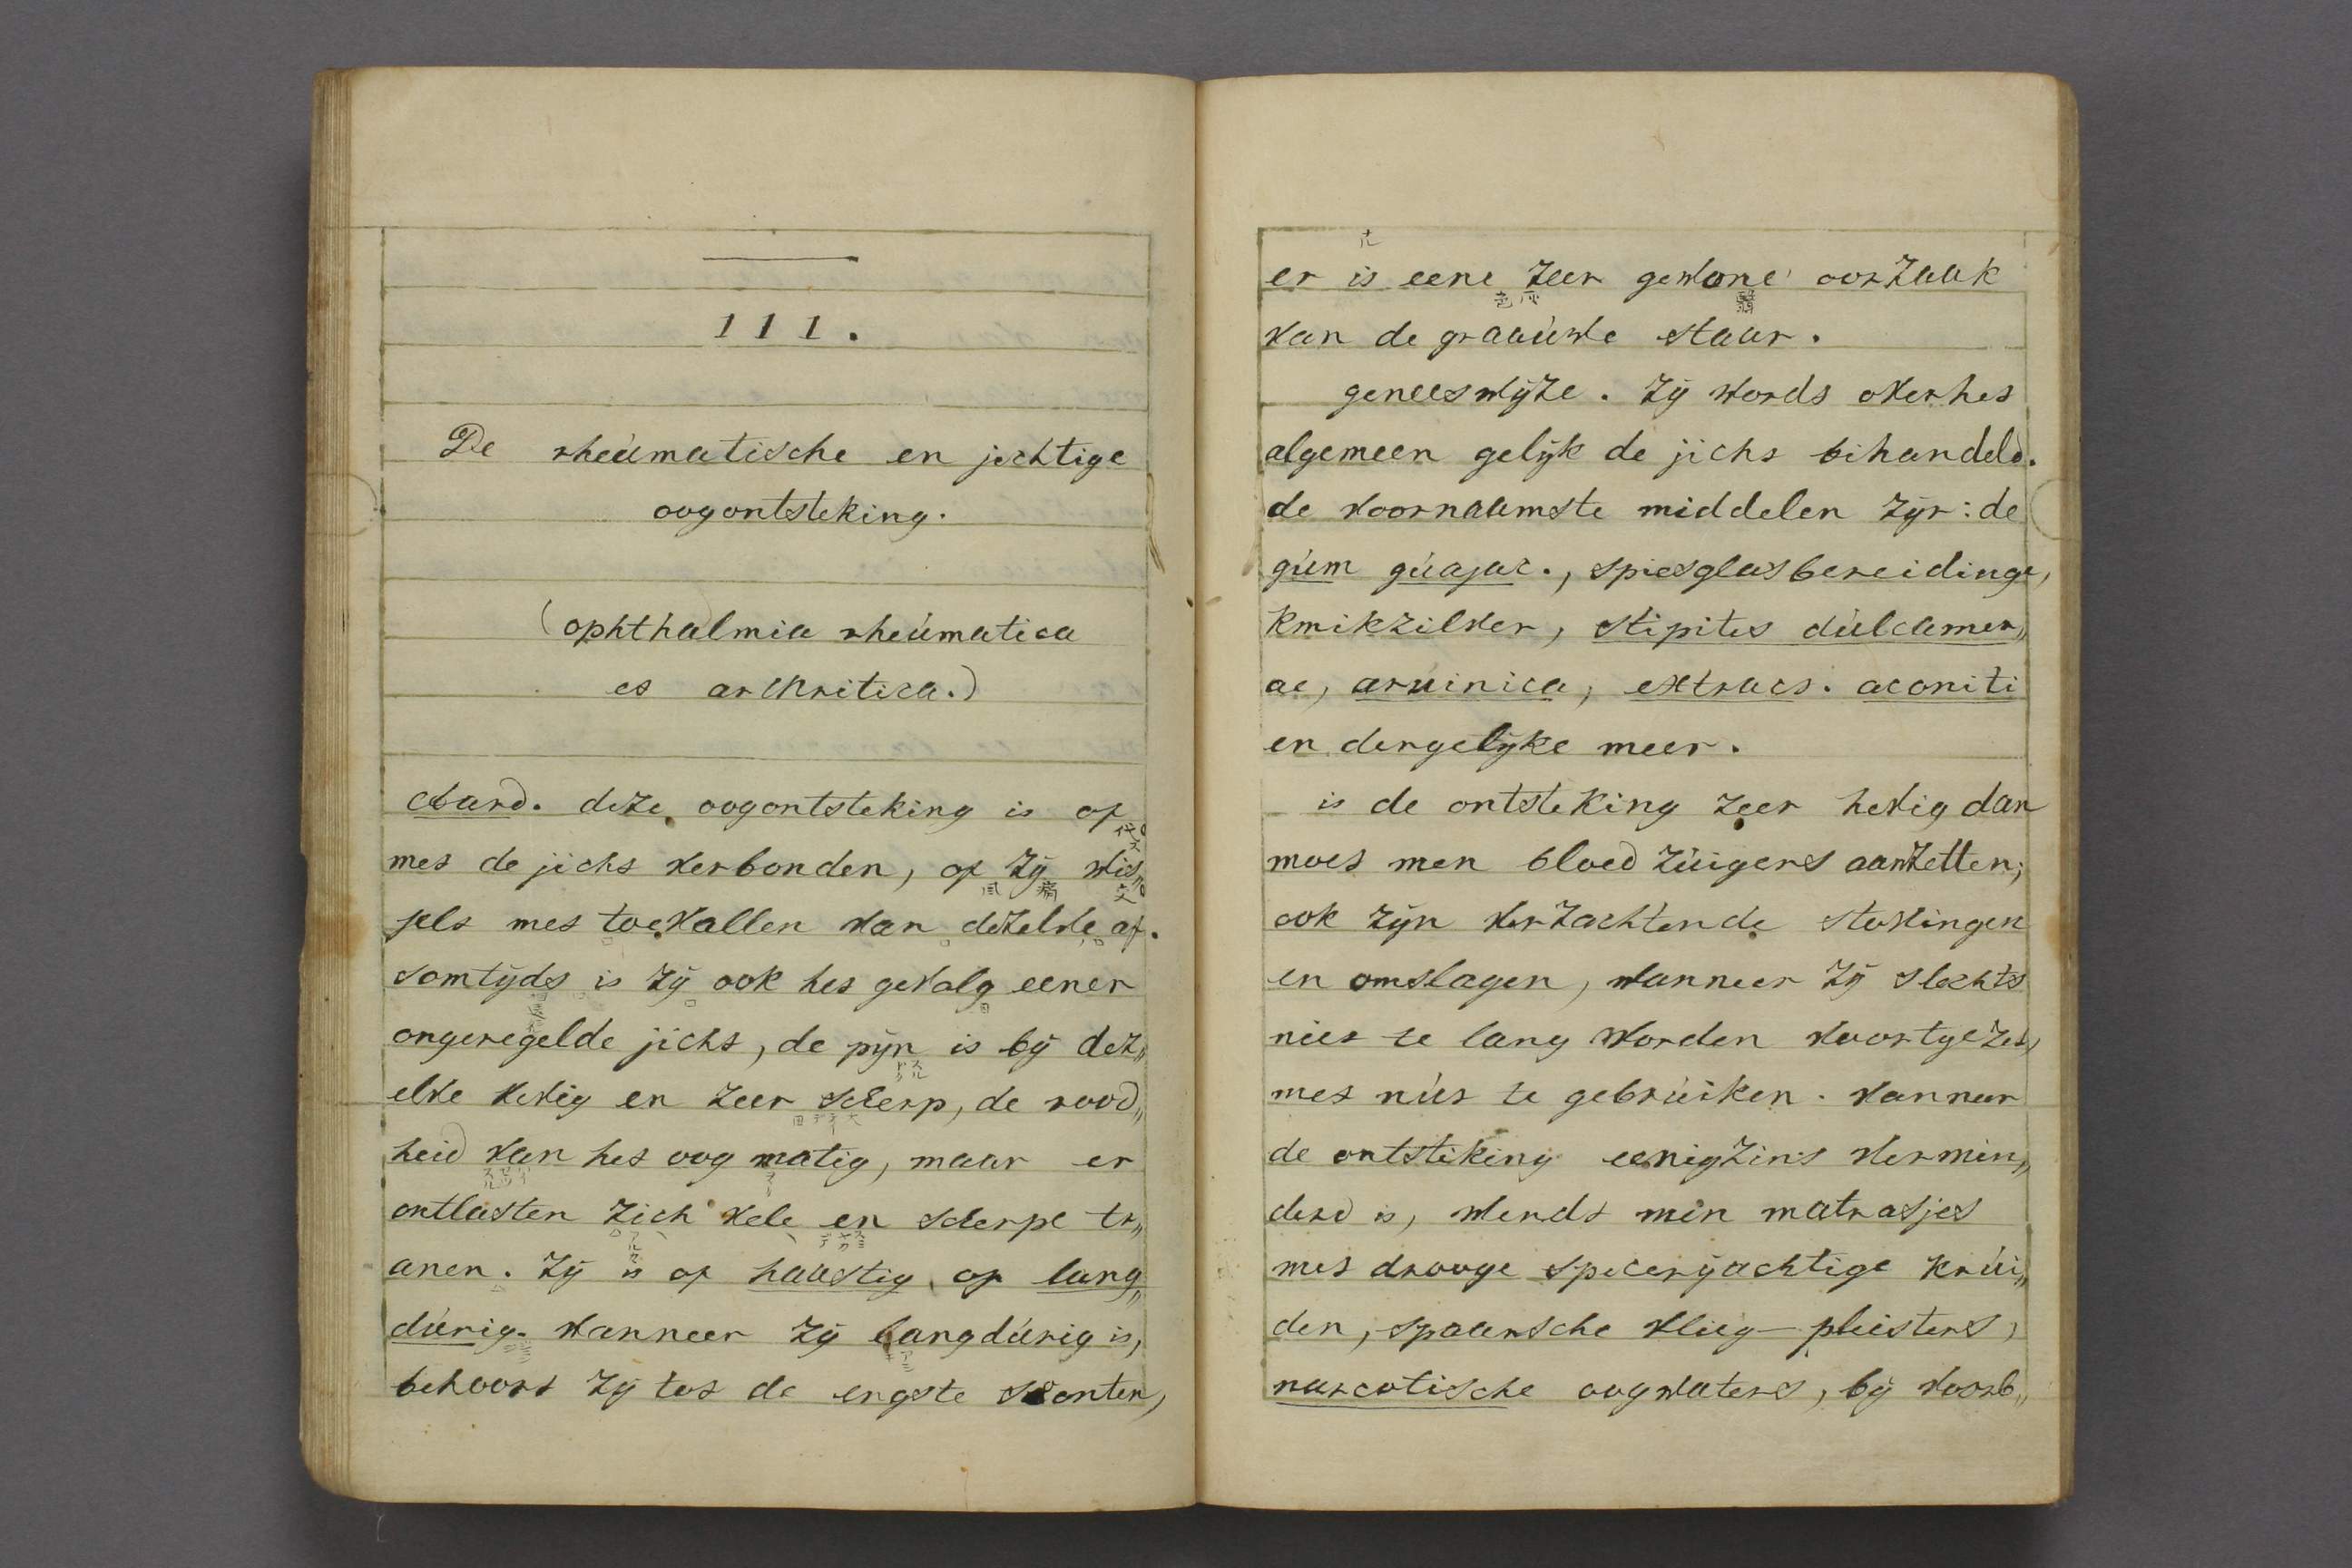 111.
De rheúmatische en jichtige
oogontsteking.
(ophthalmia rheúmatica
et arthritica.)
Aard. deze oogontsteking is of
met de jicht verbonden, of zÿ wis„
selt met toevallen van dezelve af.
somtÿds is zÿ ook het gevolg eener
ongeregelde jicht, de pÿn is bÿ dez„
elve hevig en zeer scherp, de rood„
heid van het oog matig, maar er
ontlasten zich vele en scherpe tr„
anen. Zÿ is of haastig, of lang„
dúrig. wanneer zÿ langdúrig is,
behoort zÿ tot de ergste soorten,
er is eene zeer gewone oorzaak
van de graaúwe staar.
geneeswÿze. Zÿ wordt over het
algemeen gelÿk de jicht behandeld.
de voornaamste middelen zÿn: de
gúm gúajac., spiesglasbereidinge,
kwikzilver, stipites dúlcamer„
ae, arninica, extract. aconiti
en dergelÿke meer.
is de ontsteking zeer hevig dan
moet men bloed zúigers aanzetten;
ook zÿn verzachtende stovingen
en omslagen, wanneer zÿ slechts
niet te lang worden voortgezet,
met nút te gebrúiken. wanneer
de ontsteking eenigzins vermin„
derd is, wendt men matrasjes
met drooge specerÿachtige krúi„
den, spaansche vlieg-pleisters,
narcotische oogwaters, bÿ voorb„